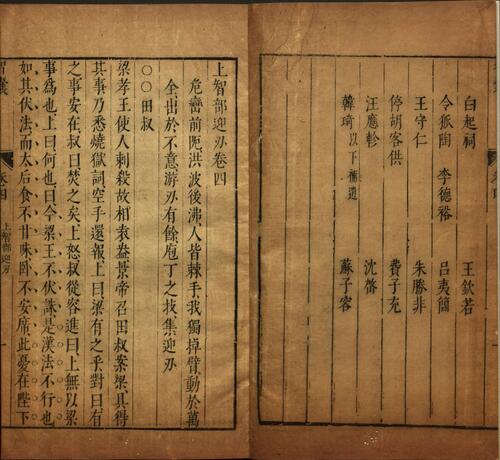 白起祠 王欽若
令狐陶 李德裕 呂夷簡
王守仁 朱勝非
停胡客供 費子充
汪應軫 沈啓
韓琦以下補遺 蘇子容
上智部迎刃卷四
危巒前阨洪波後沸人皆棘手我獨掉臂動於萬
全出於不意游刃有餘庖丁之技集迎刃
○○田叔
梁孝王使人刺殺故相袁盎景帝召田叔案梁具得
其事乃悉燒獄詞空手還報上曰梁有之乎對曰有
之事安在叔曰焚之矣上怒叔從容進曰上無以梁
事為也上曰何也曰今梁王不伏誅是漢法不行也
如其伏法而太后食不甘味臥不安席此憂在陛下
上智部迎刃